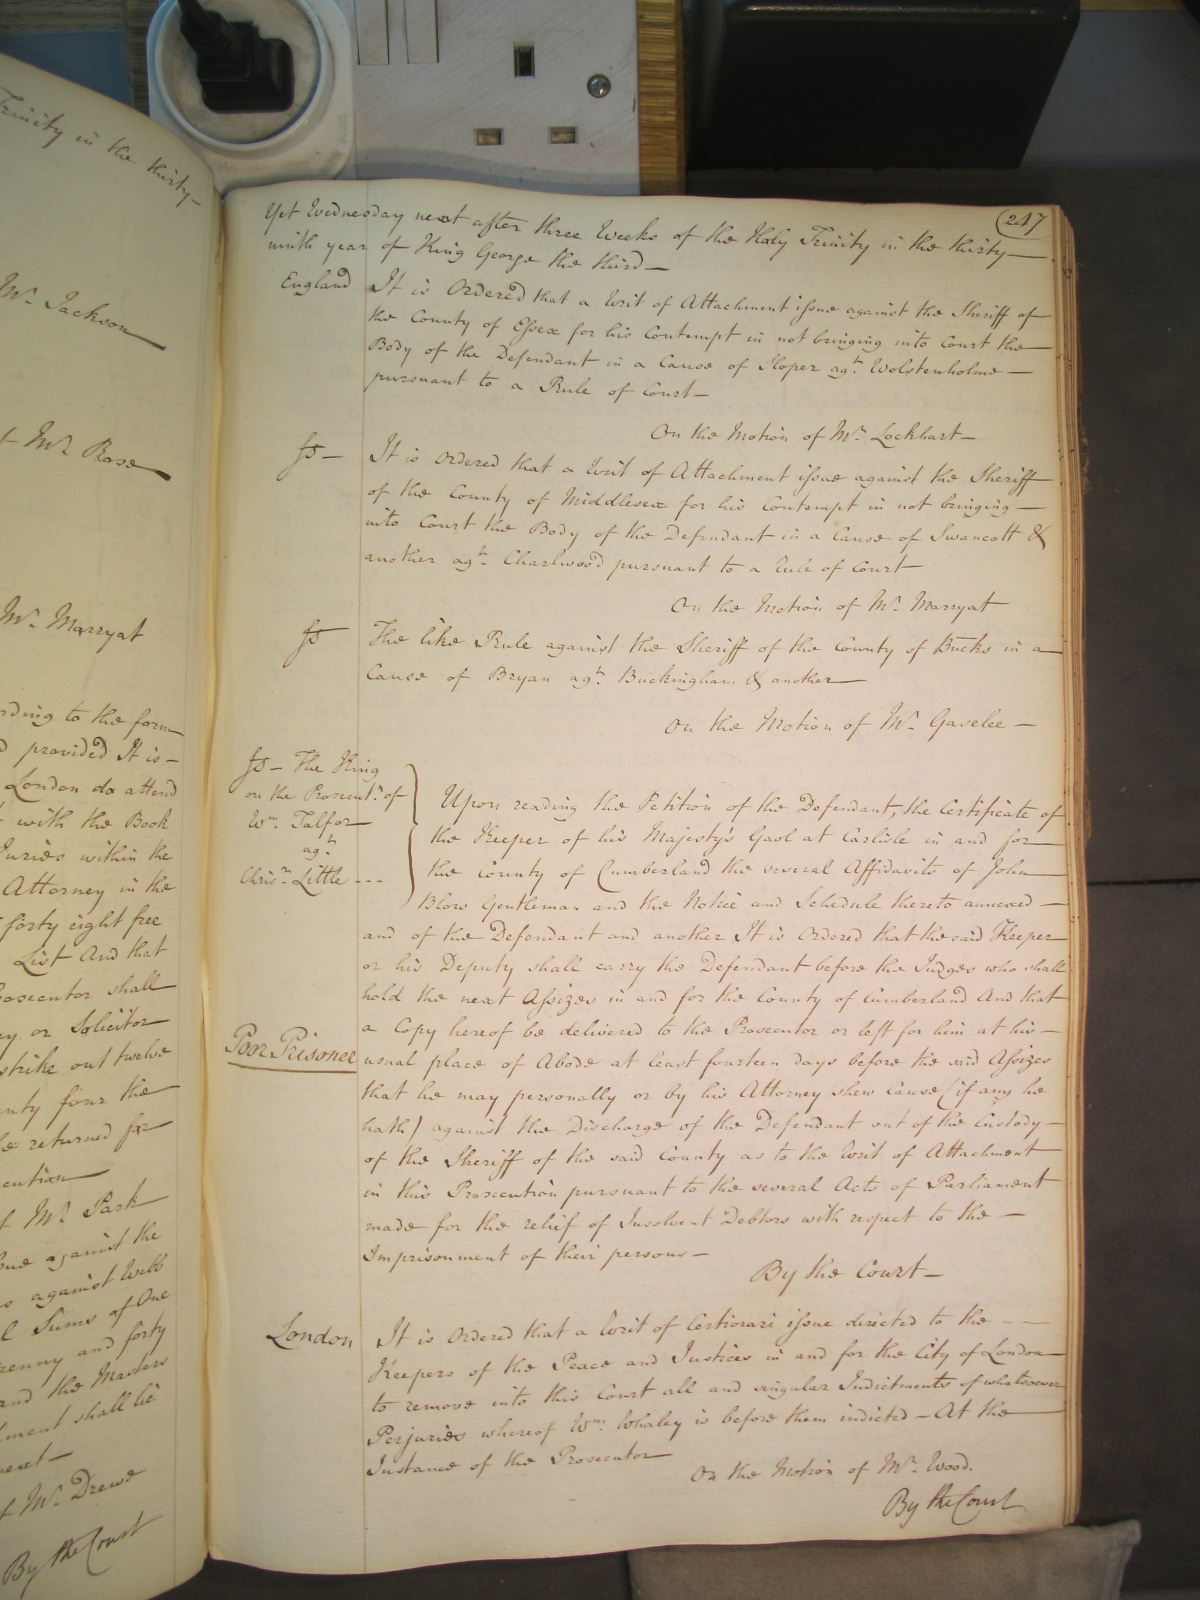 Trinity in the thirty-
Mr. Jackson
Mr. Rose
Mr. Marryat
ding to the form
provided It is-
London do attend
with the Book
Juries within the
Attorney in the
forty eight free
List And that
osecutor shall
y or Solicitor
strike out twelve
nty four the
be returned for
cution
Mr. Park
sue against the
against Webb
l Sums of One
penny and forty
and the Masters
ment shall lie
Mr. Drewe
By the Court
247
Yet Wednesday next after three Weeks of the Holy Trinity in the thirty-
ninth year of King George the third-
England It is Ordered that a Writ of Attachment issue against the Sheriff of
the County of Essex for his Contempt in not bringing into Court the
Body of the Defendant in a Cause of Sloper agt. Wolstenholme-
pursuant to a Rule of Court-
On the Motion of Mr. Lockhart-
ss- It is Ordered that a Writ of Attachment issue against the Sheriff
of the County of Middlesex for his Contempt in not bringing-
into Court the Body of the Defendant in a Cause of Swancott &
another agt. Charlwood pursuant to a Rule of Court
On the Motion of Mr. Marryat
ss The like Rule against the Sheriff of the County of Bucks in a
Cause of Bryan agt. Buckingham & another
On the Motion of Mr. Gaselee-
ss- The King
on the Prosecutn. of
Wm. Talfor
agt.
Chrisr. Little---
Upon reading the Petition of the Defendant, the Certificate of
the Keeper of his Majesty's Gaol at Carlisle in and for
the County of Cumberland the several Affidavits of John
Blow Gentleman and the Notice and Schedule thereto annexed-
and of the Defendant and another It is Ordered that the said Keeper
or his Deputy shall carry the Defendant before the Judges who shall
hold the next Assizes in and for the County of Cumberland And that
a Copy hereof be delivered to the Prosecutor or left for him at his-
Poor Prisoner
usual place of Abode at least fourteen days before the said Assizes
that he may personally or by his Attorney shew Cause (if any he
hath) against the Discharge of the Defendant out of the Custody-
of the Sheriff of the said County as to the Writ of Attachment
in this Prosecution pursuant to the several Acts of Parliament
made for the relief of Insolvent Debtors with respect to the-
Imprisonment of their persons-
By the Court-
London It is Ordered that a Writ of Certiorari issue directed to the - -
Keepers of the Peace and Justices in and for the City of London
to remove into this Court all and singular Indictments of whatsoever
Perjuries whereof Wm. Whaley is before them indicted-At the
Instance of the Prosecutor
On the Motion of Mr. Wood.
By the Court